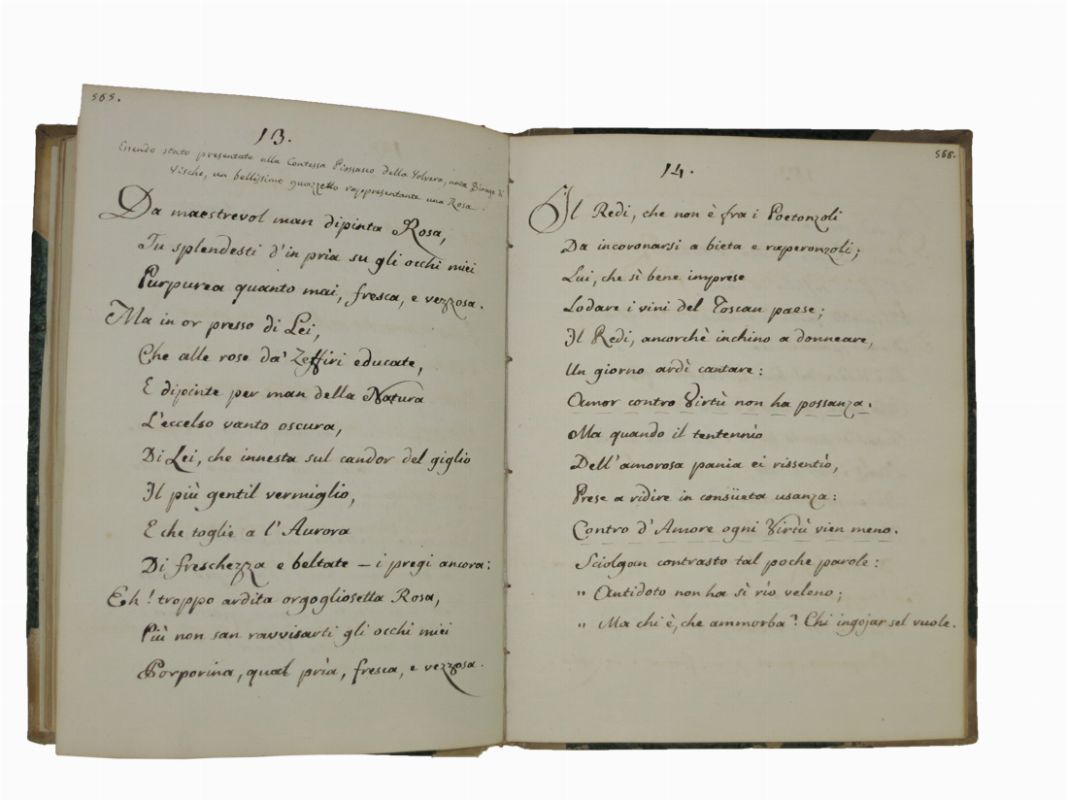 565.
13.
Essendo stato presentato alla Contessa Piossasco Della Volvera, nata Birago di
Vische, un bellissimo guazzetto rappresentante una Rosa.
Da maestrevol man dipinta Rosa,
Tu splendesti d'in pria su gli occhi miei
Purpurea quanto mai, fresca, e vezzosa.
Ma in or presso di Lei,
Che alle rose da' Zeffiri educate,
E dipinte per man della Natura
L'eccelso vanto oscura,
Di Lei, che innesta sul candor del giglio
Il più gentil vermiglio,
E che toglie a l'Aurora
Di freschezza e beltate – i pregi ancora:
Eh! troppo ardita orgogliosetta Rosa,
Più non san ravvisarti gli occhi miei
Porporina, qual pria, fresca, e vezzosa.
566.
14.
Il Redi, che non è fra i Poetonzoli
Da incoronarsi a bieta e raperonzoli;
Lui, che sì bene imprese
Lodare i vini del Toscan paese;
Il Redi, ancorchè inchino a donneare,
Un giorno ardì cantare:
Amor contro Virtù non ha possanza.
Ma quando il tentennìo
Dell'amorosa pania ei rissentìo,
Prese a ridire in consüeta usanza:
Contro d'Amore ogni Virtù vien meno.
Sciolgan contrasto tal poche parole:
" Antidoto non ha sì rio veleno;
" Ma chi è, che ammorba? Chi ingojar sel vuole.